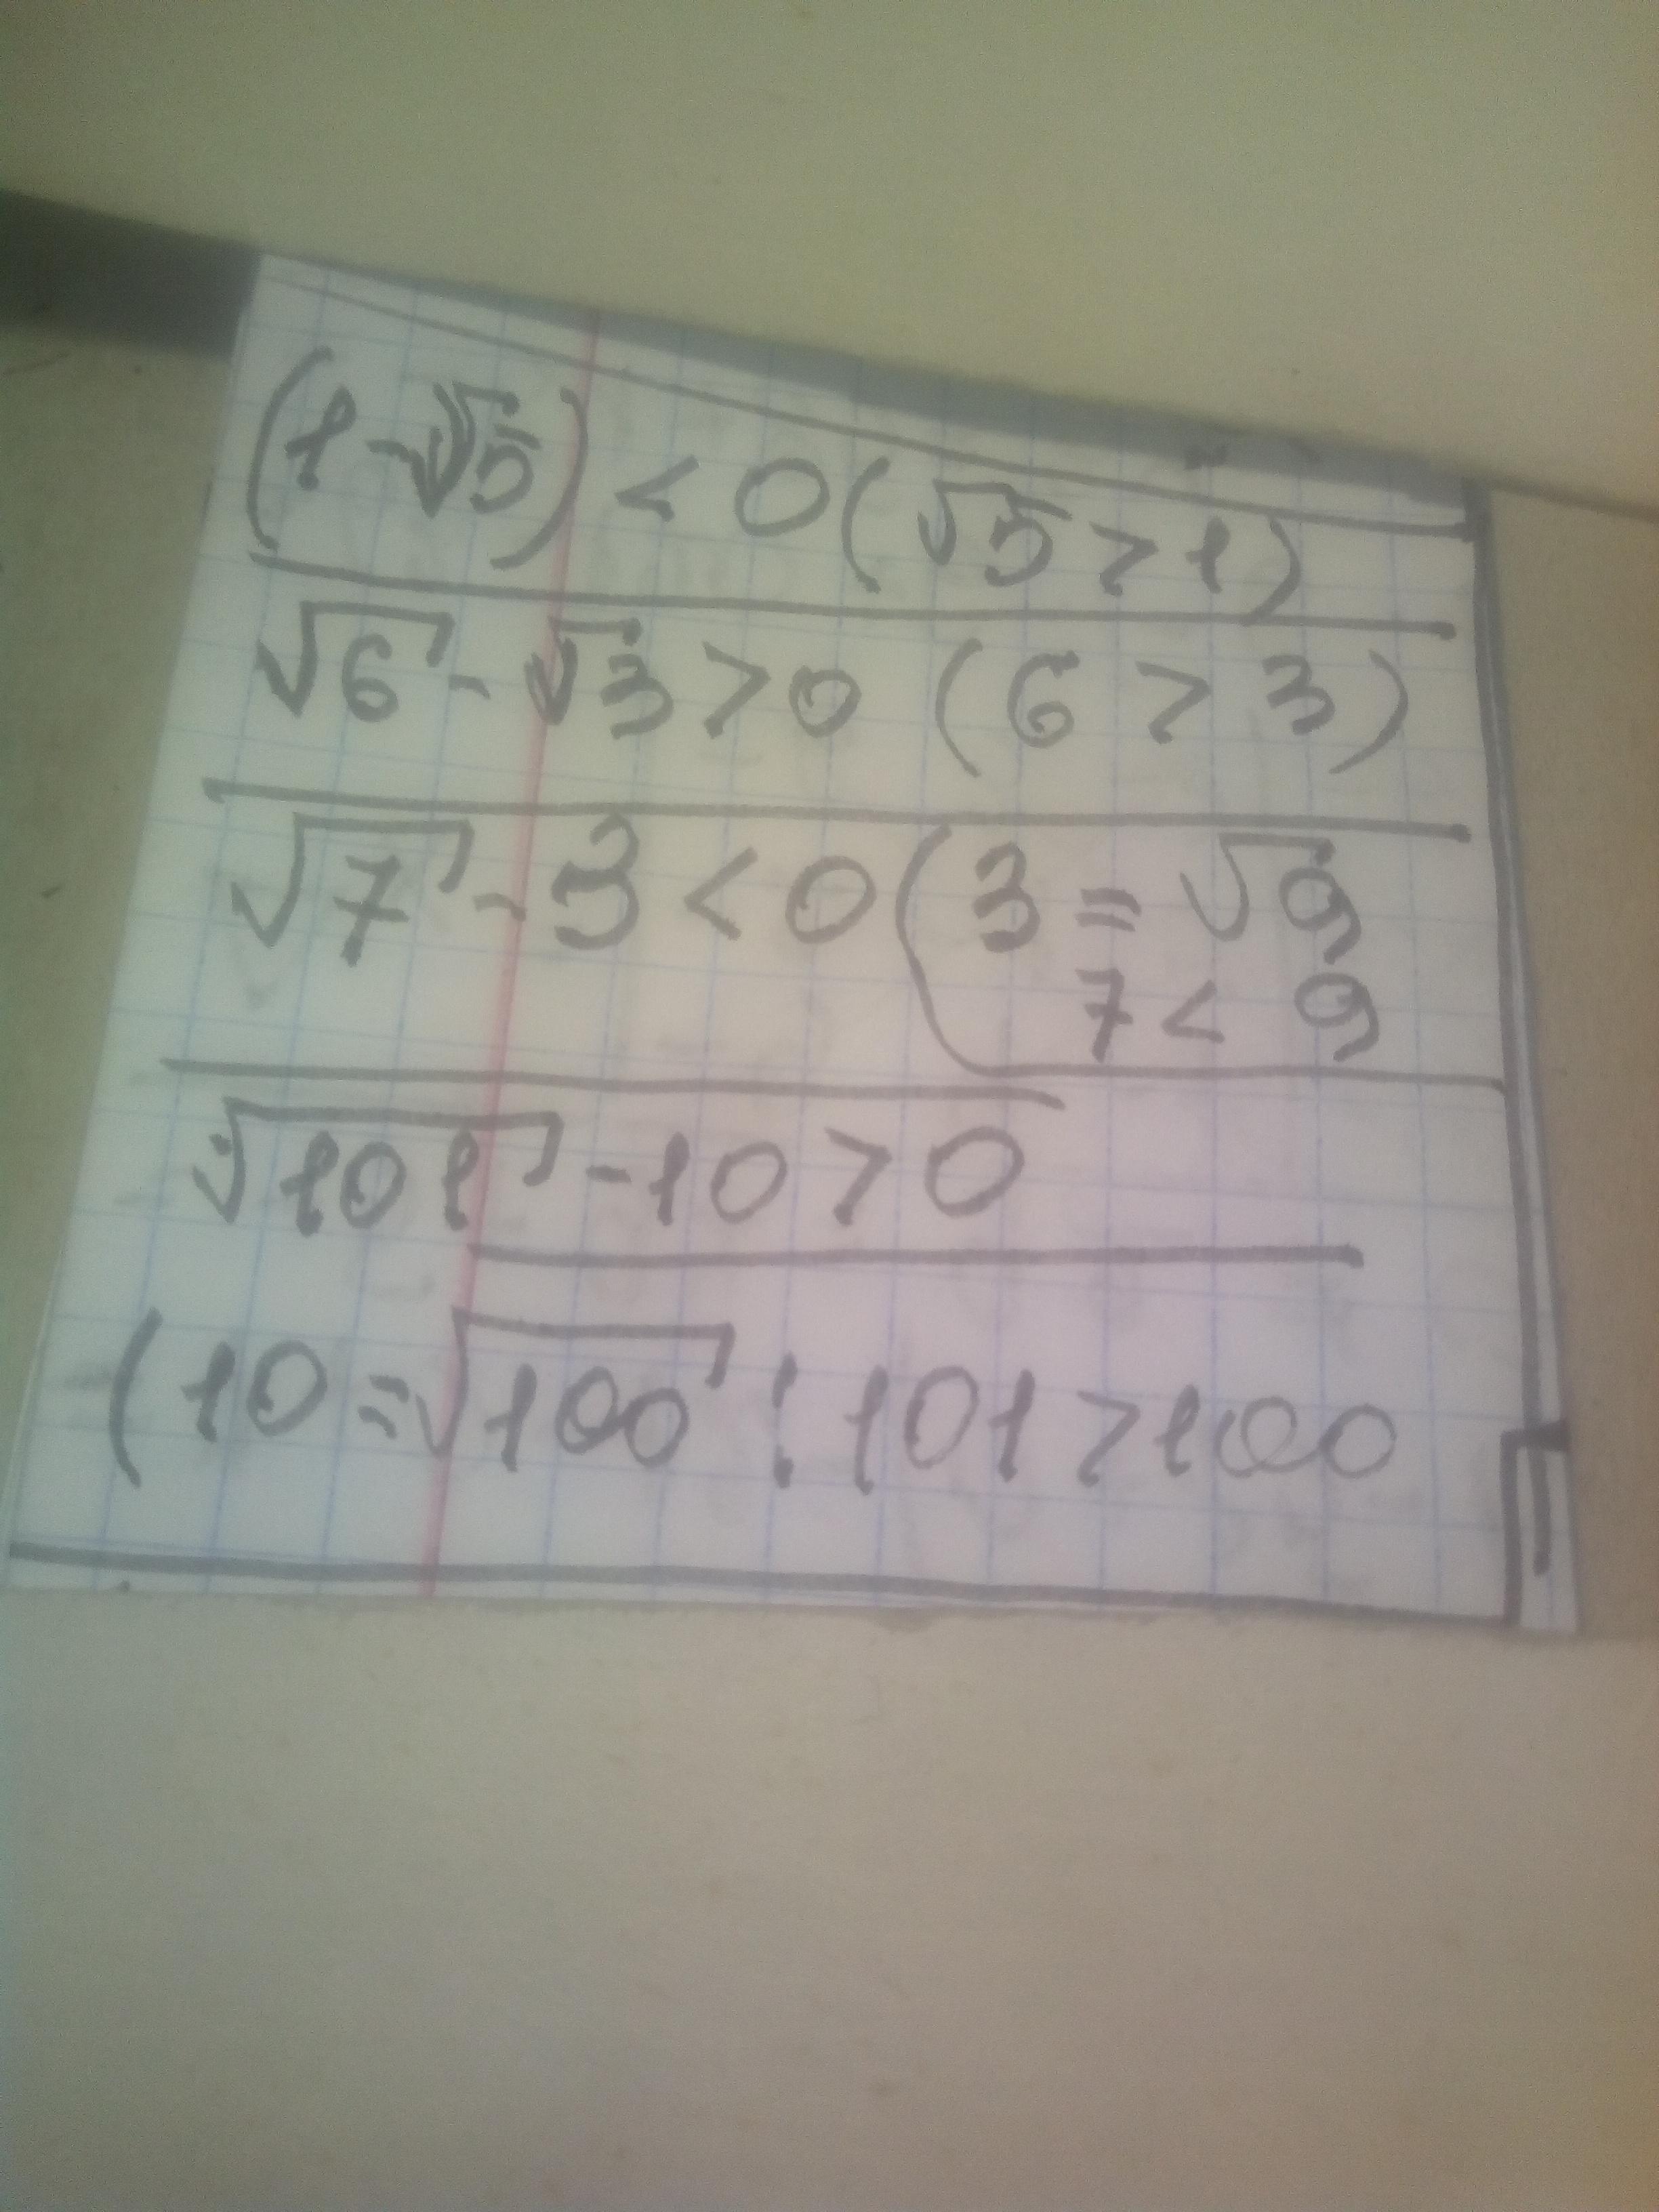 (1-√5) < 0 (√5 > 1)
√6 - √3 > 0 (6 > 3)
√7 - 3 < 0 (3 = √9
7 < 9
√101 - 10 > 0
(10 = √100 ; 101 > 100